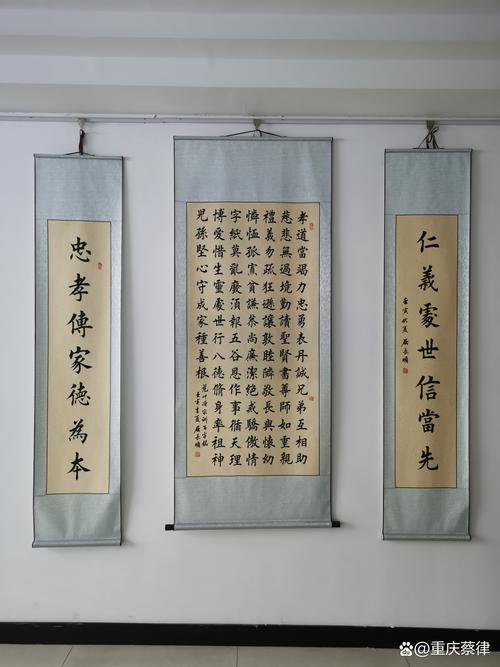 仁義處世信當先
孝道當竭力忠勇表丹誠兄弟互相助
慈悲無過境勤讀聖賢書尊師如重親
禮義勿疏狂遜讓敦睦隣敬長與懷幼
憐恤孤寡貧謙恭尚廉潔絕戒驕傲情
字紙莫亂廢須報五谷恩作事循天理
博愛惜生靈處世行八德脩身率祖神
兒孫堅心守成家種善根 范仲淹家訓百字銘
壬寅
忠孝傳家德為本
百家号@重庆蔡律